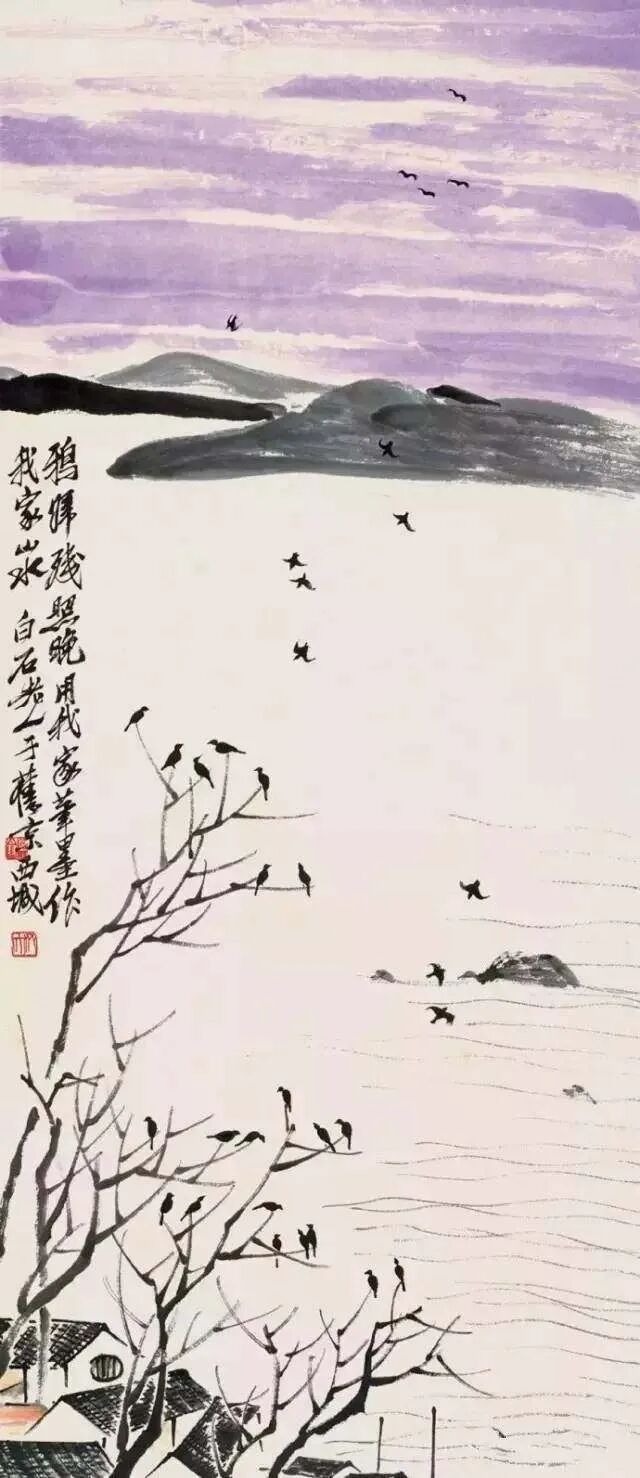 鴉歸殘照晚用我家筆墨作
我家山水 白石老人于舊京西城